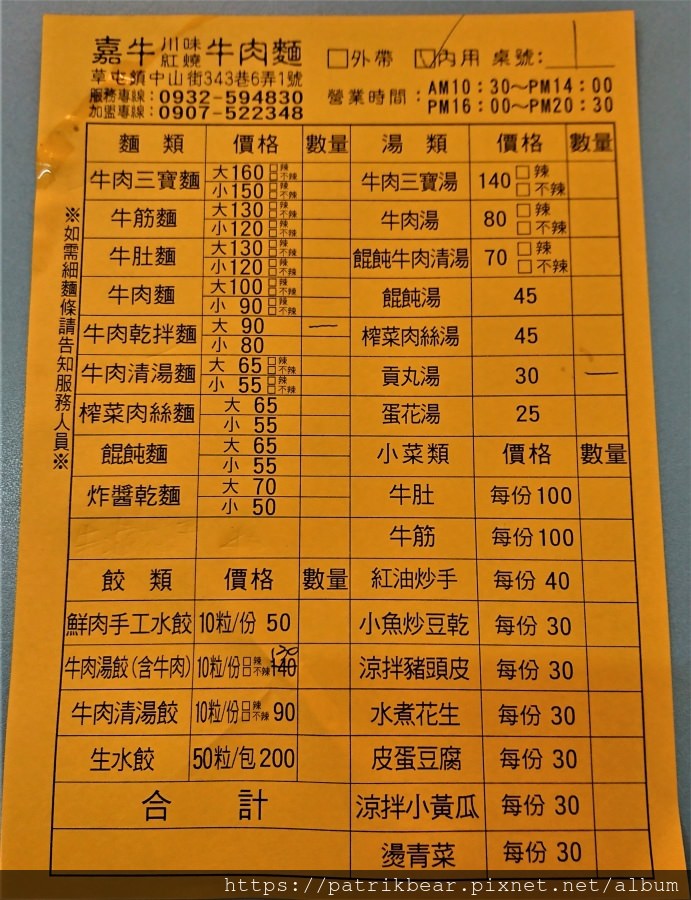 嘉牛 川味 紅燒 牛肉麵
□外帶 ☑內用 桌號: 1
草屯鎮中山街343巷6弄1號
服務專線:0932-594830
加盟專線:0907-522348
營業時間: AM10:30~PM14:00
PM16:00~PM20:30
※如需細麵條請告知服務人員※
麵 類 價格 數量
牛肉三寶麵 大160 □辣 □不辣
小150 □辣 □不辣
牛筋麵 大130 □辣 □不辣
小120 □辣 □不辣
牛肚麵 大130 □辣 □不辣
小120 □辣 □不辣
牛肉麵 大100 □辣 □不辣
小 90 □辣 □不辣
牛肉乾拌麵 大 90 一
小 80
牛肉清湯麵 大 65 □辣 □不辣
小 55 □辣 □不辣
榨菜肉絲麵 大 65
小 55
餛飩麵 大 65
小 55
炸醬乾麵 大 70
小 50
餃 類 價格 數量
鮮肉手工水餃 10粒/份 50
牛肉湯餃(含牛肉) 10粒/份 □辣 □不辣 140 120
牛肉清湯餃 10粒/份 □辣 □不辣 90
生水餃 50粒/包 200
合 計
湯 類 價格 數量
牛肉三寶湯 140 □辣 □不辣
牛肉湯 80 □辣 □不辣
餛飩牛肉清湯 70 □辣 □不辣
餛飩湯 45
榨菜肉絲湯 45
貢丸湯 30 一
蛋花湯 25
小菜類 價格 數量
牛肚 每份100
牛筋 每份100
紅油炒手 每份 40
小魚炒豆乾 每份 30
涼拌豬頭皮 每份 30
水煮花生 每份 30
皮蛋豆腐 每份 30
涼拌小黃瓜 每份 30
燙青菜 每份 30
https://patrikbear.pixnet.net/album